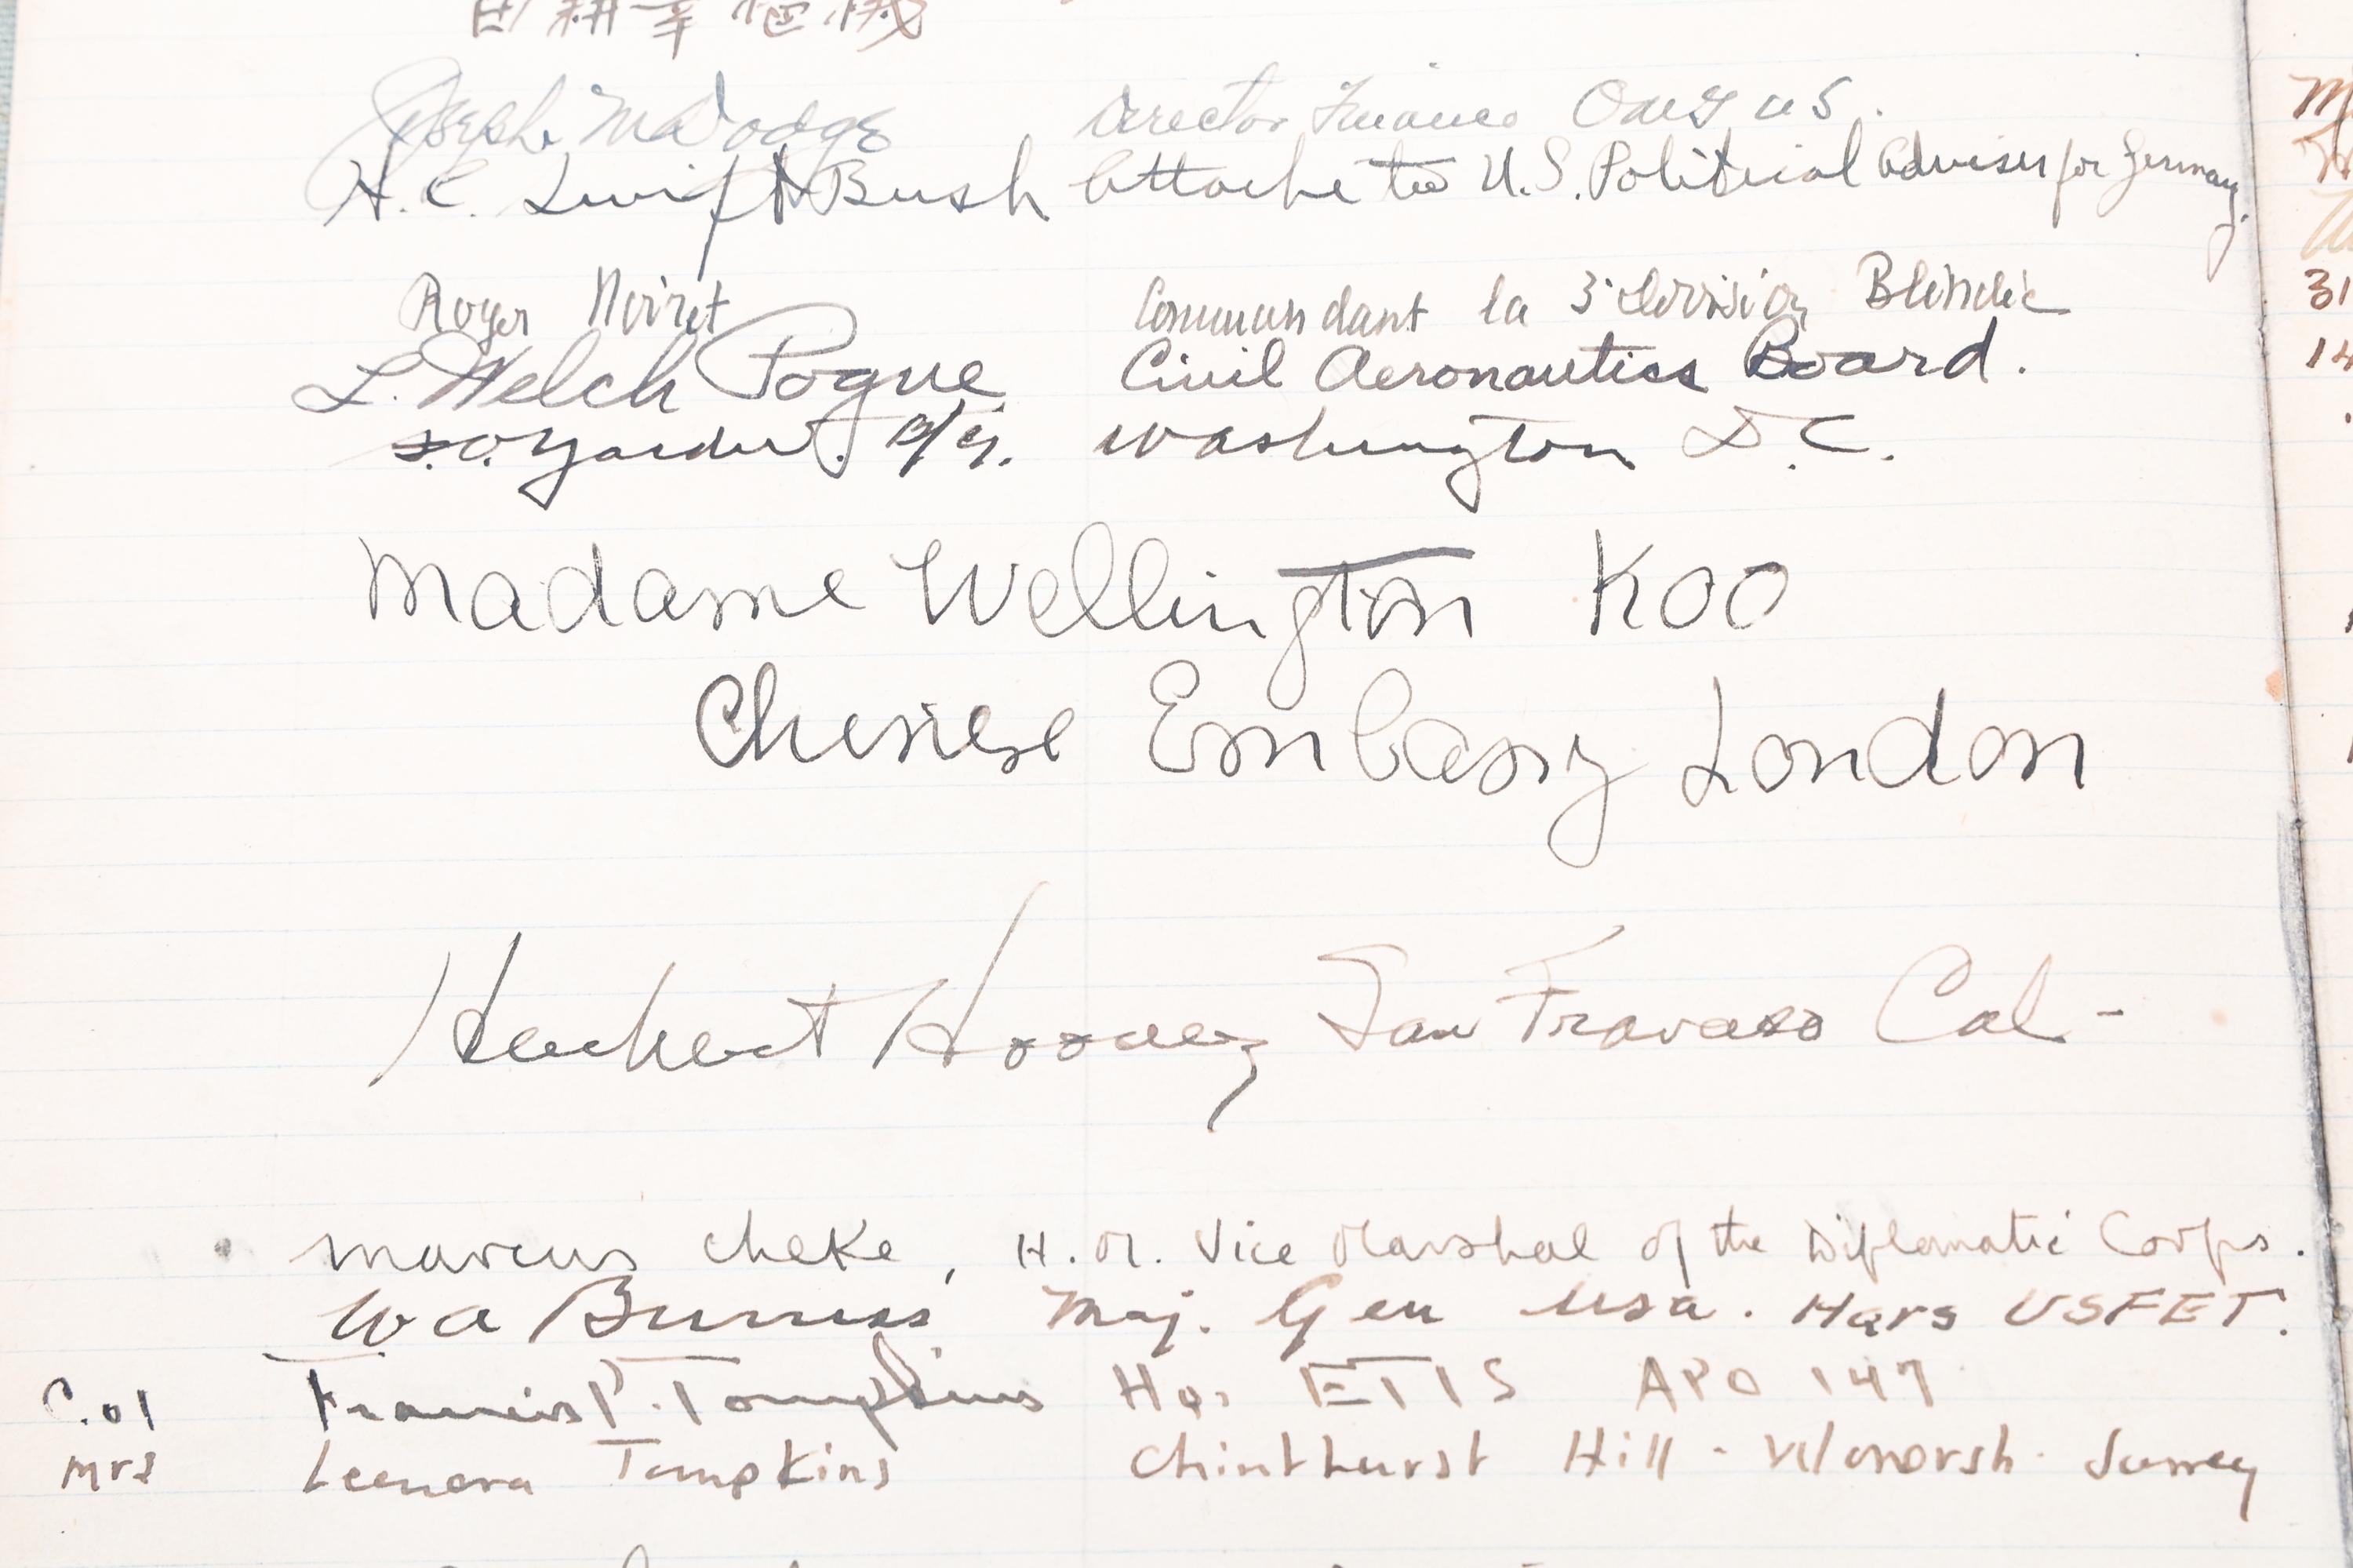 田耕莘
Joseph M Dodge Director Finance OMGUS.
H. C. Swift Bush Attache to U.S. Political Adviser for Germany.
Roger Noiret Commandant la 3e Division Blindée
L. Welch Pogue Civil Aeronautics Board.
Washington D.C.
Madame Wellington Koo
Chinese Embassy London
Herbert Hoover San Francisco Cal-
Marcus Cheke, H.M. Vice Marshal of the Diplomatic Corps.
W A Burress Maj. Gen USA. Hqrs USFET.
Col Francis P. Tompkins Hqs ETIS APO 147
Mrs Leenora Tompkins Chinthurst Hill - Wonersh - Surrey
31
14